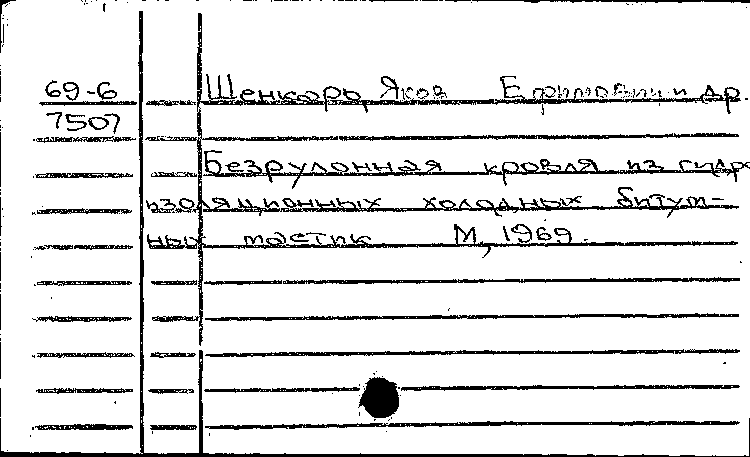 69-6 Шенкарь, Яков Ефимович и др.
7507
Безрулонная кровля из гидро
изоляционных холодных битум-
ных мастик М, 1969.